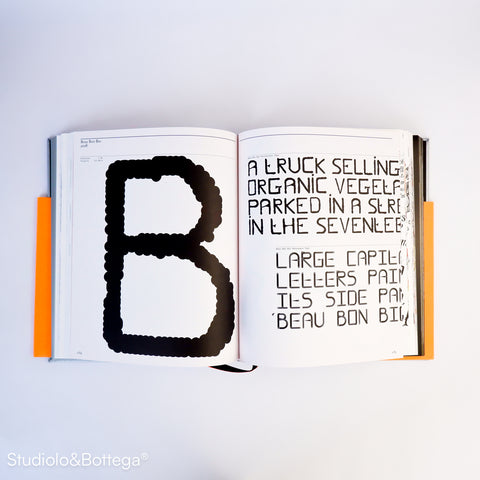 B
A TRUCK SELLING
ORGANIC VEGETA
PARKED IN A STRE
IN THE SEVENTEE
LARGE CAPITA
LETTERS PAIN
ITS SIDE PA
BEAU BON BIO
Studiolo&Bottega®